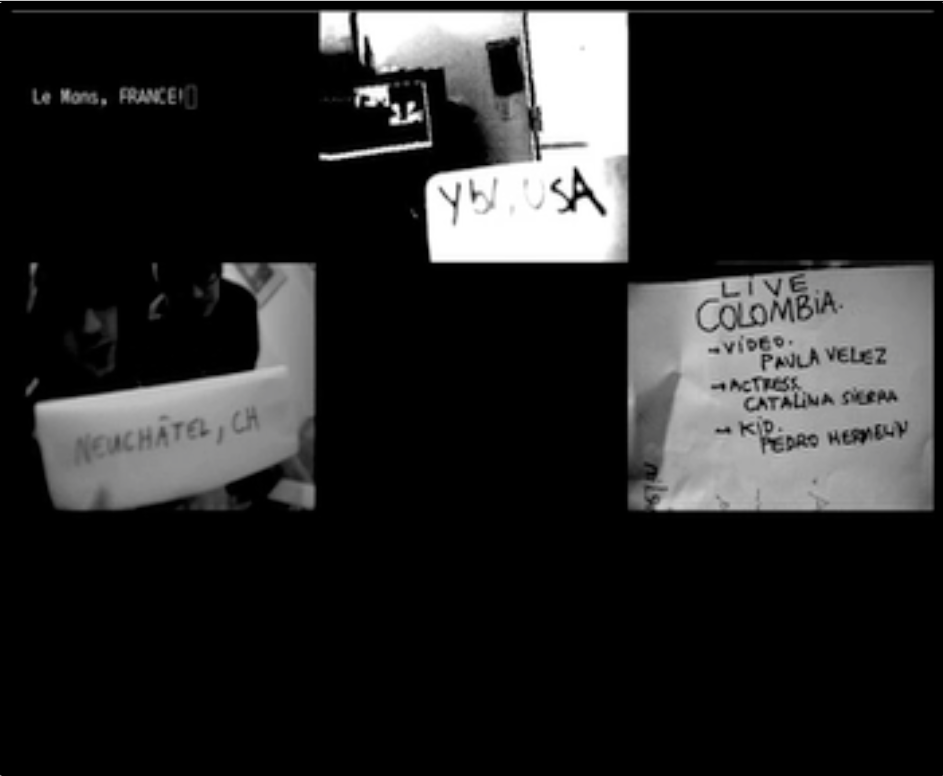 Le Mans, FRANCE!
USA
NEUCHÂTEL, CH
LIVE
COLOMBIA.
→VIDEO.
PAULA VELEZ
→ACTRESS.
CATALINA SIERRA
→ KID.
PEDRO HERMELIN